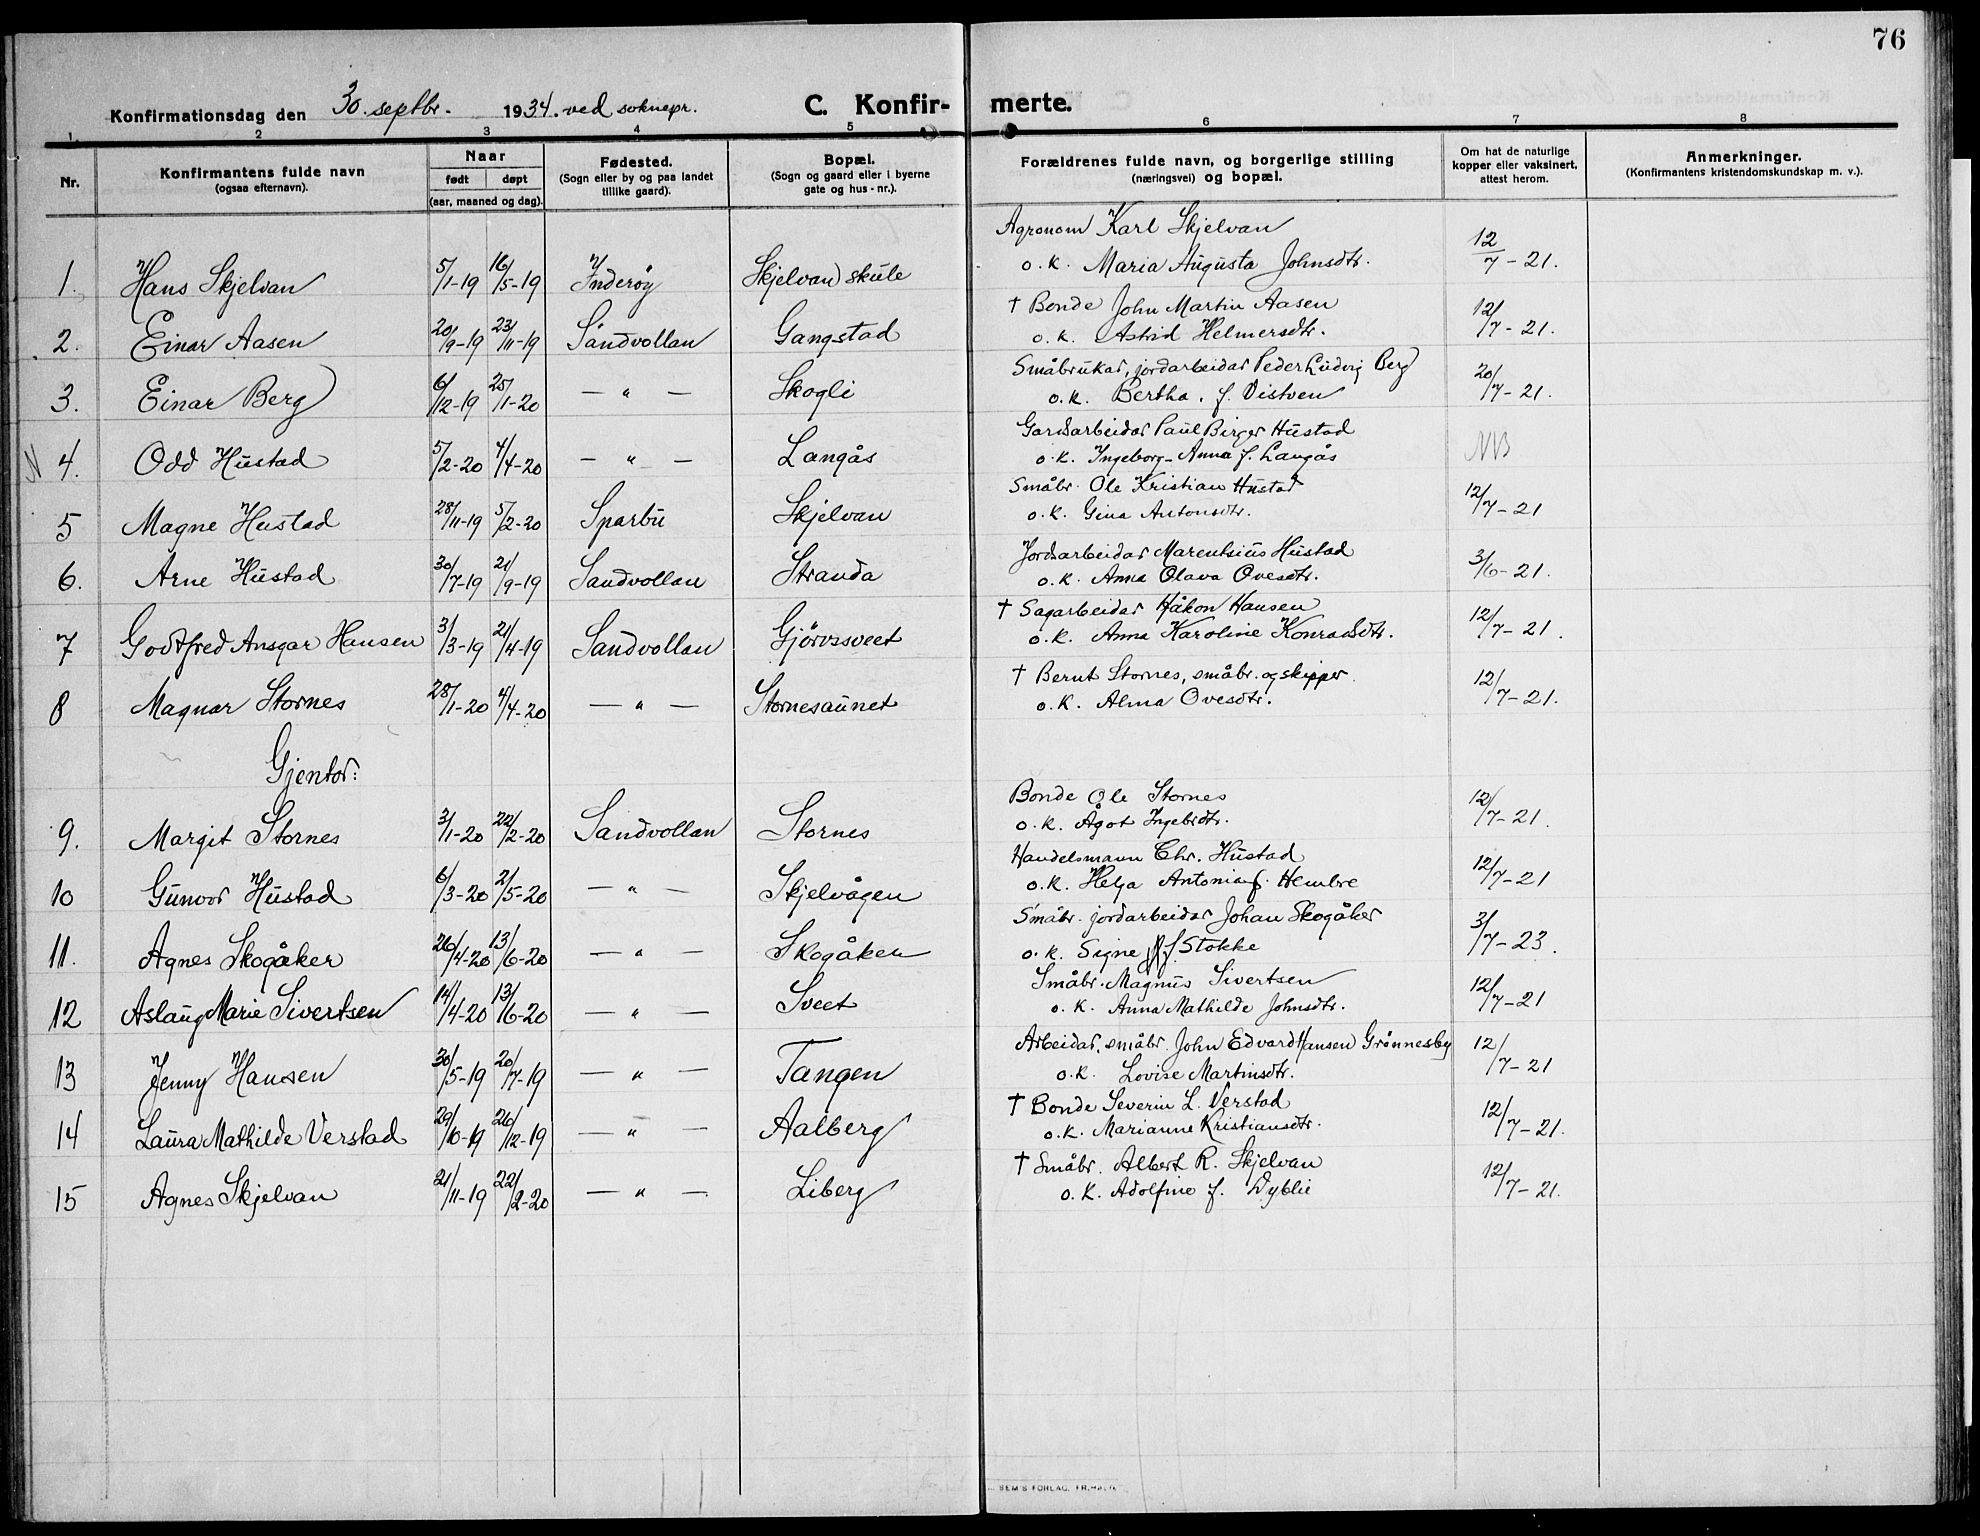 76
Konfirmationsdag den 30. septbr. 1934. ved soknepr. C. Konfirmerte.
1. 2 3 4 5 6 7 8
Nr. Konfirmantens fulde navn (ogsaa efternavn). Naar født døpt (aar, maaned og dag). Fødested. (Sogn eller by og paa landet tillike gaard). Bopæl. (Sogn og gaard eller i byerne gate og hus-nr.). Forældrenes fulde navn, og borgerlige stilling (næringsvei) og bopæl. Om hat de naturlige kopper eller vaksinert, attest herom. Anmerkninger. (Konfirmantens kristendomskundskap m. v.).
Agronom Karl Skjelvan
1. Hans Skjelvan 5/1-19 16/5-19 Inderøy Skjelvan skule o. k. Maria Augusta Johnsdtr. 12/7-21.
† Bonde John Martin Aasen
2. Einar Aasen 20/9-19 23/11-19 Sandvollan Gangstad o. k. Astrid Helmersdtr. 12/7-21.
Småbrukar, jordarbeidar Peder Ludvig Berg
3. Einar Berg 6/12-19 25/1-20 — " — Skogli o. k. Bertha. f. Vistven 20/7-21.
Gardsarbeidar Paul Birger Hustad
N 4. Odd Hustad 5/2-20 4/4-20 — " — Langås o. k. Ingeborg-Anna f. Langås NB
Småbr. Ole Kristian Hustad
5 Magne Hustad 28/11-19 5/2-20 Sparbu Skjelvan o. k. Gina Antonsdtr. 12/7-21
Jordarbeidar Marentsius Hustad
6. Arne Hustad 30/7-19 21/9-19 Sandvollan Stranda o. k. Anna Olava Ovesdtr. 3/6-21.
† Sagarbeidar Håkon Hansen
7 Godtfred Ansgar Hansen 3/3-19 21/4-19 Sandvollan Gjørvssveet o. k. Anna Karoline Konradsdtr. 12/7-21.
† Bernt Stornes, småbr. og skipper
8 Magnar Stornes 28/1-20 4/4-20 — " — Stornesaunet o. k. Alma Ovesdtr. 12/7-21.
Gjentor:
Bonde Ole Stornes
9. Margit Stornes 3/1-20 22/2-20 Sandvollan Stornes o. k. Ågot Ingebrdtr. 12/7-21.
Handelsmann Chr. Hustad
10 Gunvor Hustad 6/3-20 2/5-20 — " — Skjelvågen o. k. Helga Antonia f. Hembre 12/7-21
Småbr. jordarbeidar Johan Skogåker
11. Agnes Skogåker 26/4-20 13/6-20 — " — Skogåken o. k. Signe f. Stokke 3/7-23.
Småbr. Magnus Sivertsen
12 Aslaug Marie Sivertsen 14/4-20 13/6-20 — " — Sveet o. k. Anna Mathilde Johnsdtr. 12/7-21
Arbeidar, småbr. John Edvard Hansen Grønnesby
13 Jenny Hansen 30/5-19 20/7-19 — " — Tangen o. k. Lovise Martinsdtr. 12/7-21
† Bonde Severin L. Verstad
14 Laura Mathilde Verstad 29/10-19 26/12-19 — " — Aalberg o. k. Marianne Kristiansdtr. 12/7-21.
† Småbr. Albert R. Skjelvan
15 Agnes Skjelvan 21/11-19 22/2-20 — " — Liberg o. k. Adolfine f. Dyblie 12/7-21.
SEM'S FORLAG,